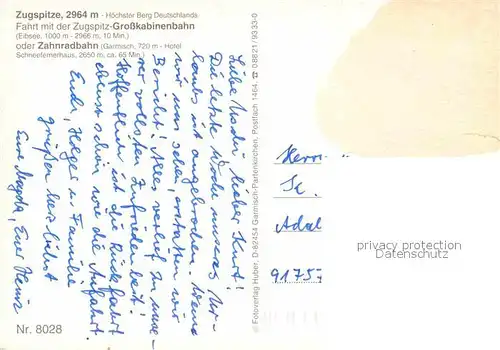 Zugspitze, 2964 m - Höchster Berg Deutschlands
Fahrt mit der Zugspitz-Großkabinenbahn
(Eibsee, 1000 m - 2966 m, 10 Min.)
oder Zahnradbahn (Garmisch, 720 m - Hotel
Schneefernerhaus, 2650 m, ca. 65 Min.)
Liebe Uschi, lieber Kurt!
Die letzte Woche unseres Ur-
laubs ist angebrochen. Wenn
wir uns sehen, erstatten wir
Bericht! Alles verlief zu unse-
rer vollsten Zufriedenheit!
Hoffentlich ist die Rückfahrt
ebenso schön wie die Anfahrt.
Euch, Holger u. Familie
grüßen herzlichst
Eure Magda, Euer Heinz
Nr. 8028
© Fotoverlag Huber, D-82454 Garmisch-Partenkirchen, Postfach 1464, ☎ 08821/9333-0
Herrn
K.
Adel
91757
privacy protection
Datenschutz